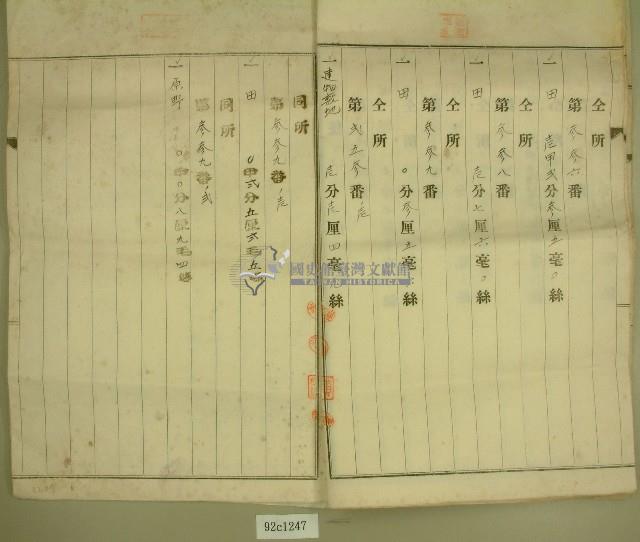 仝所
第参参六番
一 田 壱甲弐分参厘五毫〇絲
仝所
第参参八番
一 田 壱分七厘六毫〇絲
仝所
第参参九番
一 田 〇分参厘五毫〇絲
仝所
第弐五参番ノ壱
一 建物敷地 壱分壱厘四毫〇絲
同所
第参参九番ノ壱
一 田 〇甲弐分五厘弐毛五絲
同所
第参参九番ノ弐
一 原野 〇甲〇分八厘九毛四絲
國史館臺灣文獻館
TAIWAN HISTORICA
92c1247